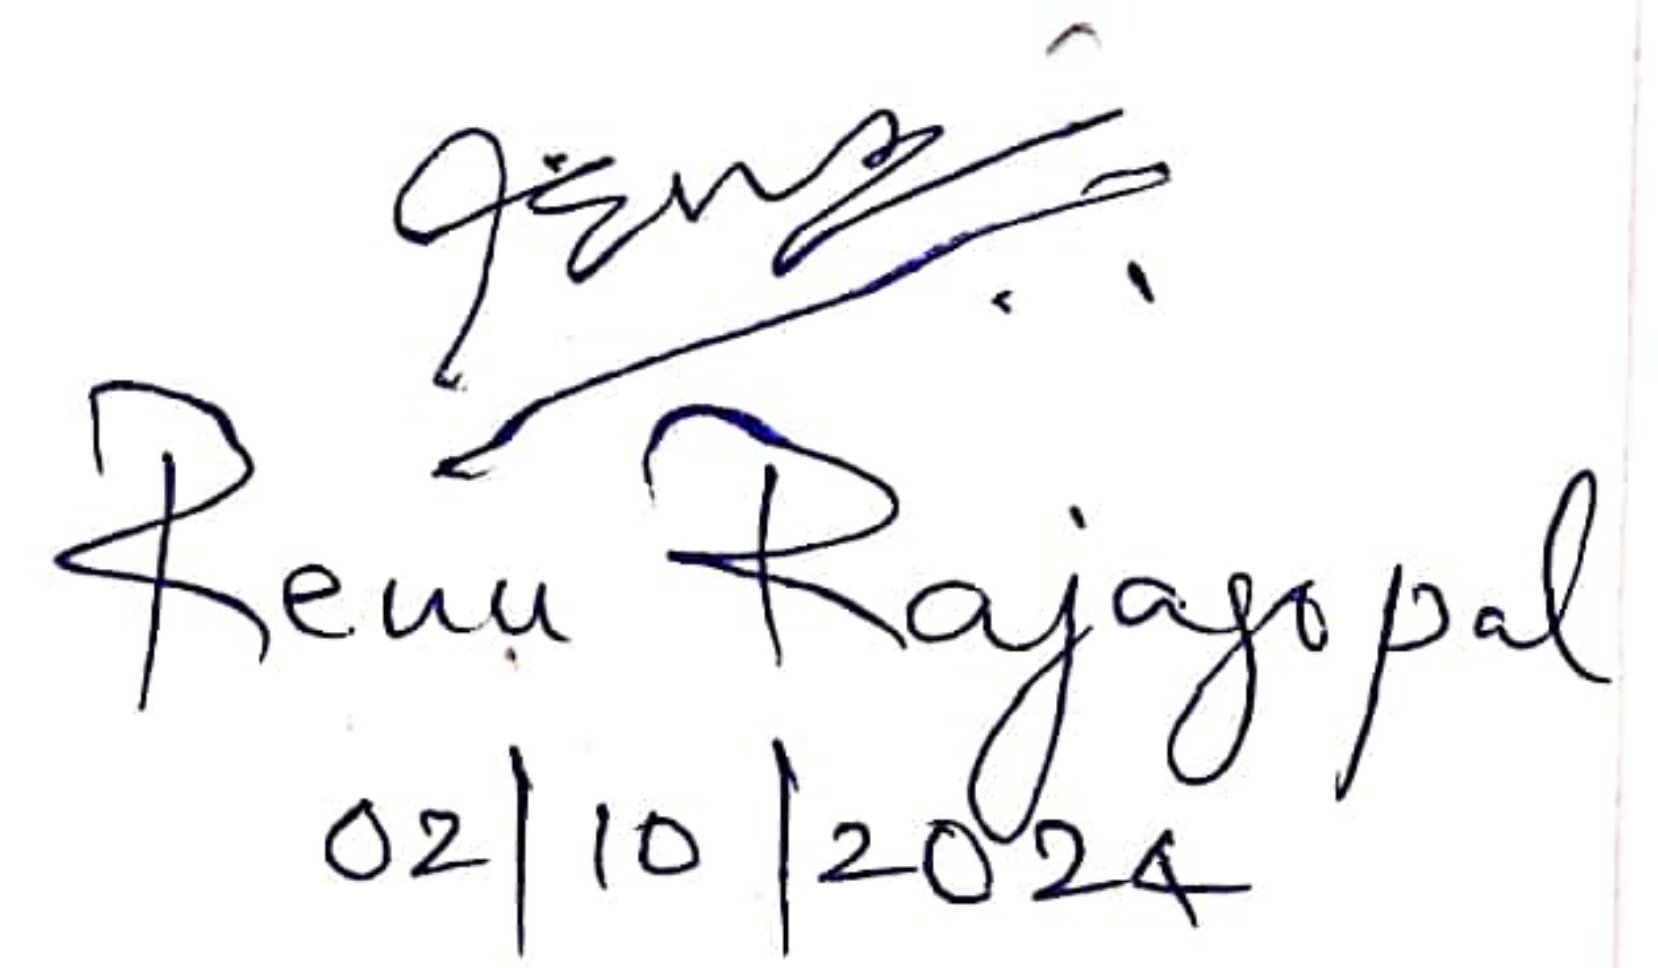 Renu Rajagopal
02/10/2024